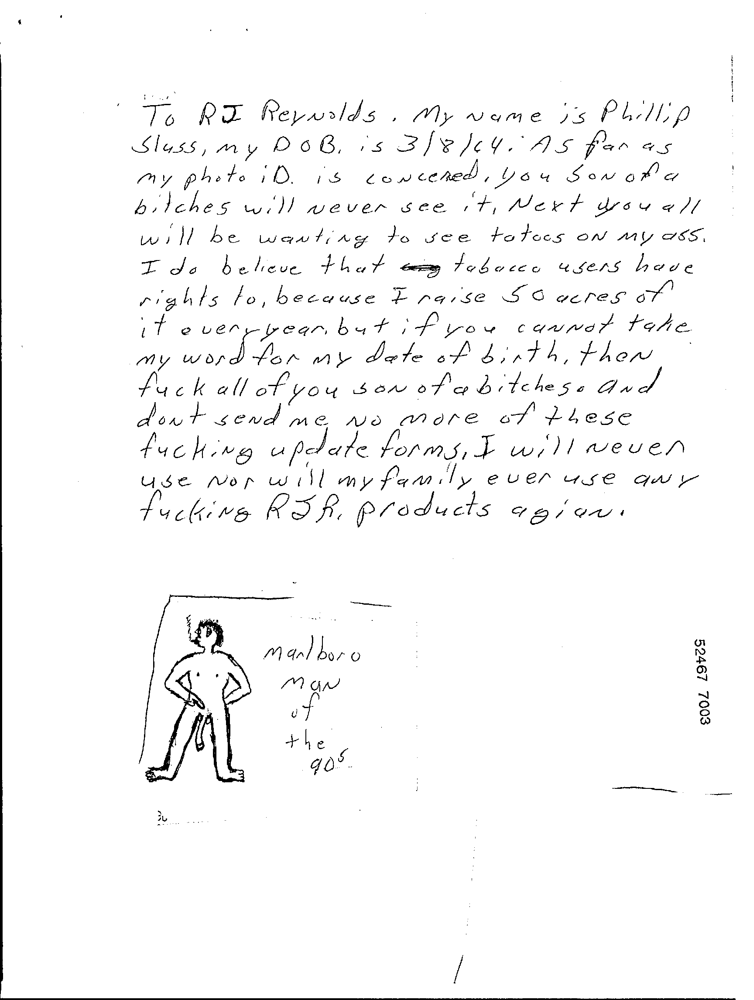 To RJ Reynolds. My name is Phillip
Slass, my DOB. is 3/8/64. As far as
my photo iD. is concened, you son of a
bitches will never see it, Next you all
will be wanting to see tatoos on my ass.
I do believe that tobacco users have
rights to, because I raise 50 acres of
it every year, but if you cannot take
my word for my date of birth, then
fuck all of you son of a bitches. and
dont send me no more of these
fucking update forms, I will never
use nor will my family ever use any
fucking RJR. products agian.
marlboro
man
of
the
90s
52467 7003